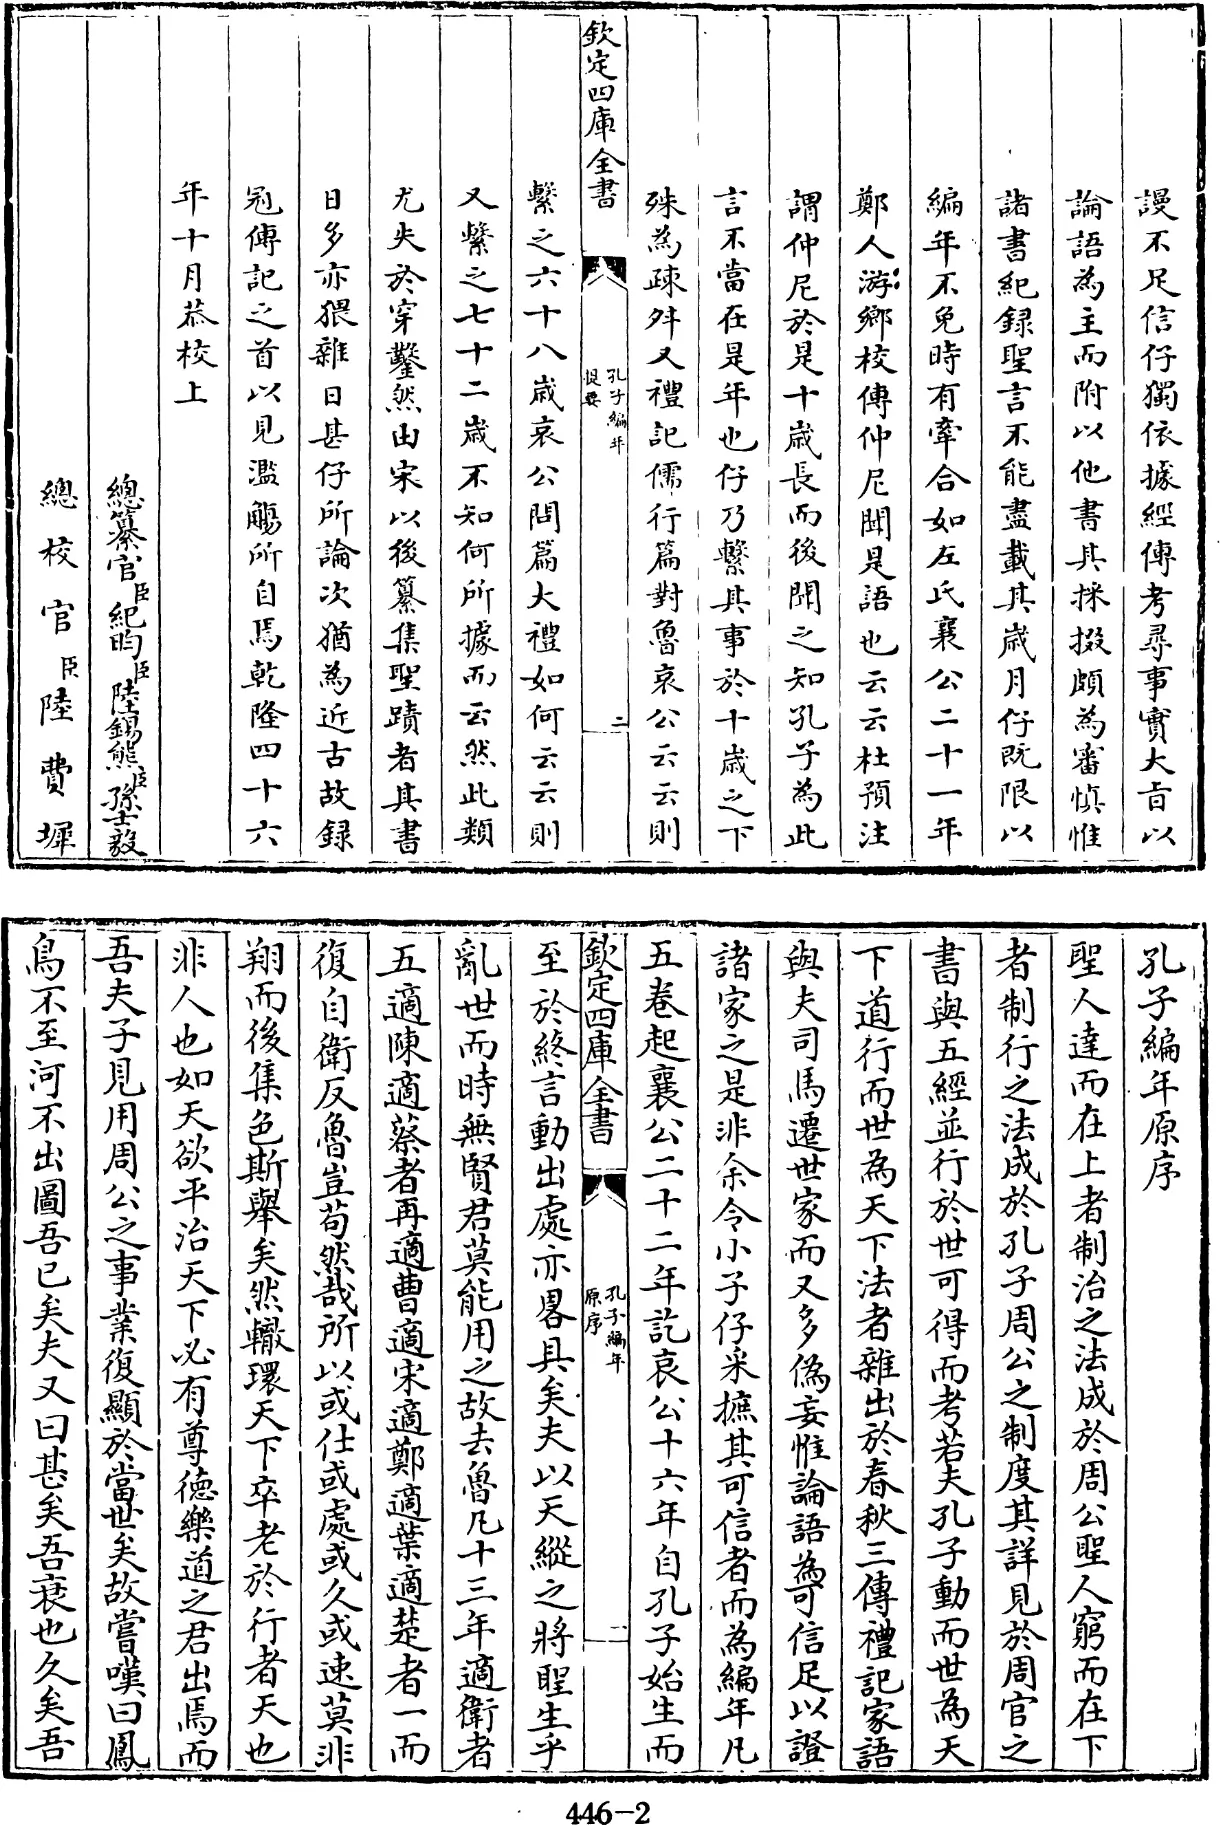 謾不足信仔獨依據經傳考尋事實大旨以
論語為主而附以他書其採掇頗為審慎惟
諸書紀録聖言不能盡載其歲月仔既限以
編年不免時有牽合如左氏襄公二十一年
鄭人游鄉校傳仲尼聞是語也云云杜預注
謂仲尼於是十歲長而後聞之知孔子為此
言不當在是年也仔乃繫其事於十歲之下
殊為疎舛又禮記儒行篇對魯哀公云云則
欽定四庫全書
孔子編年
提要
二
繫之六十八歲哀公問篇大禮如何云云則
又繫之七十二歲不知何所據而云然此類
尤失於穿鑿然由宋以後纂集聖蹟者其書
日多亦猥雜日甚仔所論次猶為近古故録
冠傳記之首以見濫觴所自焉乾隆四十六
年十月恭校上
總纂官臣紀昀臣陸錫熊臣孫士毅
總校官臣陸費墀
孔子編年原序
聖人達而在上者制治之法成於周公聖人窮而在下
者制行之法成於孔子周公之制度其詳見於周官之
書與五經並行於世可得而考若夫孔子動而世為天
下道行而世為天下法者雜出於春秋三傳禮記家語
與夫司馬遷世家而又多偽妄惟論語為可信足以證
諸家之是非余令小子仔采摭其可信者而為編年凡
五卷起襄公二十二年訖哀公十六年自孔子始生而
欽定四庫全書
孔子編年
原序
一
至於終言動出處亦畧具矣夫以天縱之將聖生乎
亂世而時無賢君莫能用之故去魯凡十三年適衛者
五適陳適蔡者再適曹適宋適鄭適葉適楚者一而
復自衛反魯豈苟然哉所以或仕或處或久或速莫非
翔而後集色斯舉矣然轍環天下卒老於行者天也
非人也如天欲平治天下必有尊德樂道之君出焉而
吾夫子見用周公之事業復顯於當世矣故嘗嘆曰鳳
鳥不至河不出圖吾已矣夫又曰甚矣吾衰也久矣吾
446-2